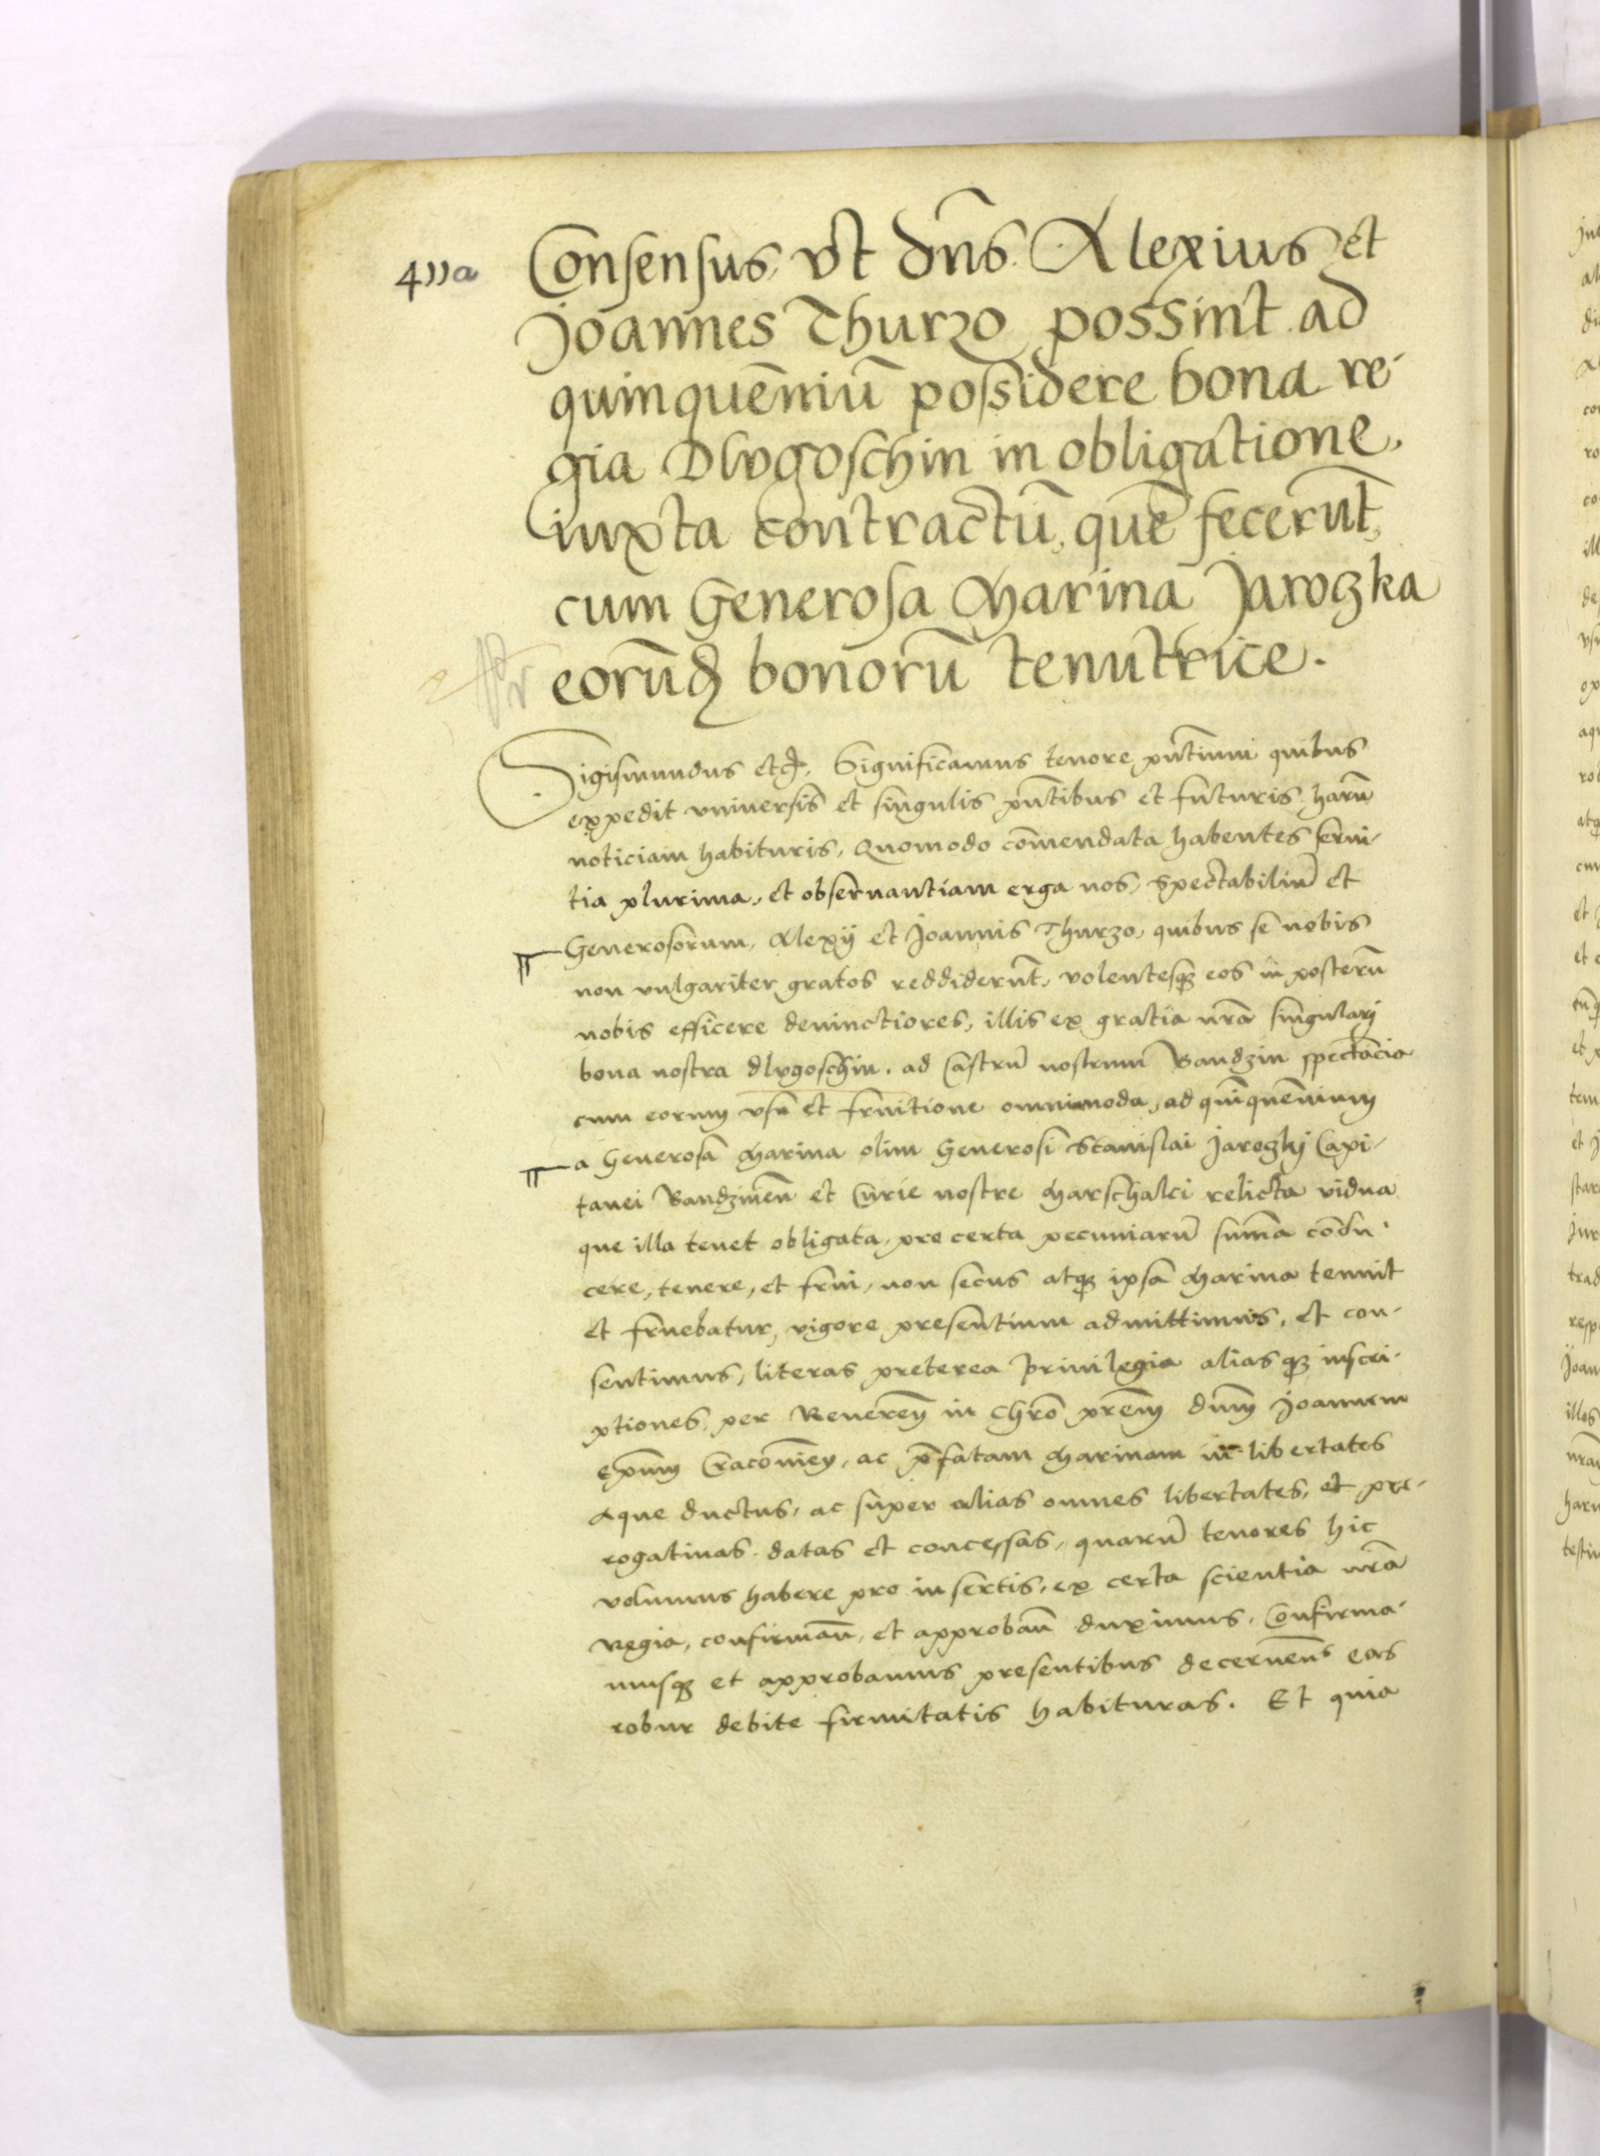 411a
Consensus, vt dn̄s. Alexius et
Joannes Thurzo possint ad
quinquēniū possidere bona re-
gia Dlvgoschin in obligatione,
iuxta contractū, quē fecerūt,
cum Generosa Marina Jaroczka
eorūdē bonorū tenutrice.
Sigismundus etc. Significamus tenore pn̄tium quibus
expedit vniuersis et singulis pn̄tibus et futuris harū
noticiam habituris, Quomodo cōmendata habentes serui-
tia plurima, et obseruantiam erga nos, spectabiliū et
Generosorum, Alexÿ et Joannis Thurzo, quibus se nobis
non vulgariter gratos reddiderūt, volentesqȝ eos in posterū
nobis efficere deuinctiores, illis ex gratia nrā singulari
bona nostra dlvgoschin, ad Castrū nostrum Bandzin spectācia
cum eorum vsu et fruitione omnimoda, ad quīquēnium
a Generosa Marina olim Generosi Stanislai Jaroczkj Capi-
tanei Bandzineñ et Curie nostre Marschalci relicta vidua
que illa tenet obligata, pro certa pecuniarū sum̄a condu-
cere, tenere, et frui, non secus atqȝ ipsa Marina tenuit
et fruebatur, vigore presentium admittimus, et con-
sentimus, literas preterea priuilegia aliasqȝ inscri-
ptiones, per Reuereñ in Chrō prēm dn̄m Joannem
Ep̄um Cracoviēn, ac p̄fatam Marinam in libertates
Aque ductus, ac super alias omnes libertates, et pre-
rogatiuas datas et concessas, quarū tenores hic
volumus habere pro insertis, ex certa scientia nrā
Regia, confirmañ, et approbañ duximus, Confirma-
musqȝ et approbamus presentibus decernen̄s eas
robur debite firmitatis habituras. Et quia